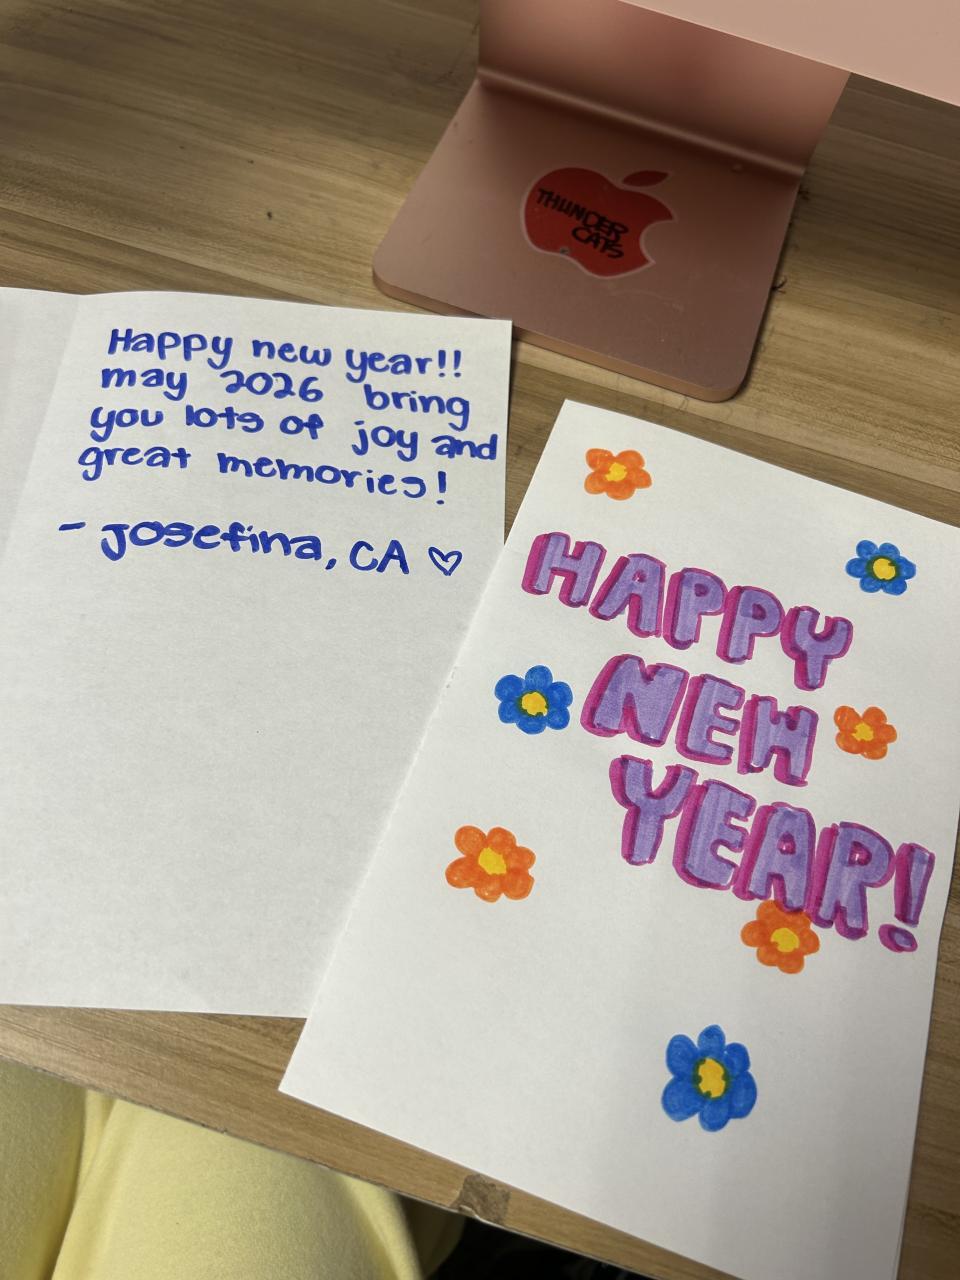 THUNDER
CATS
Happy new year!!
may 2026 bring
you lots of joy and
great memories!
- Josefina, CA ♡
HAPPY
NEW
YEAR!